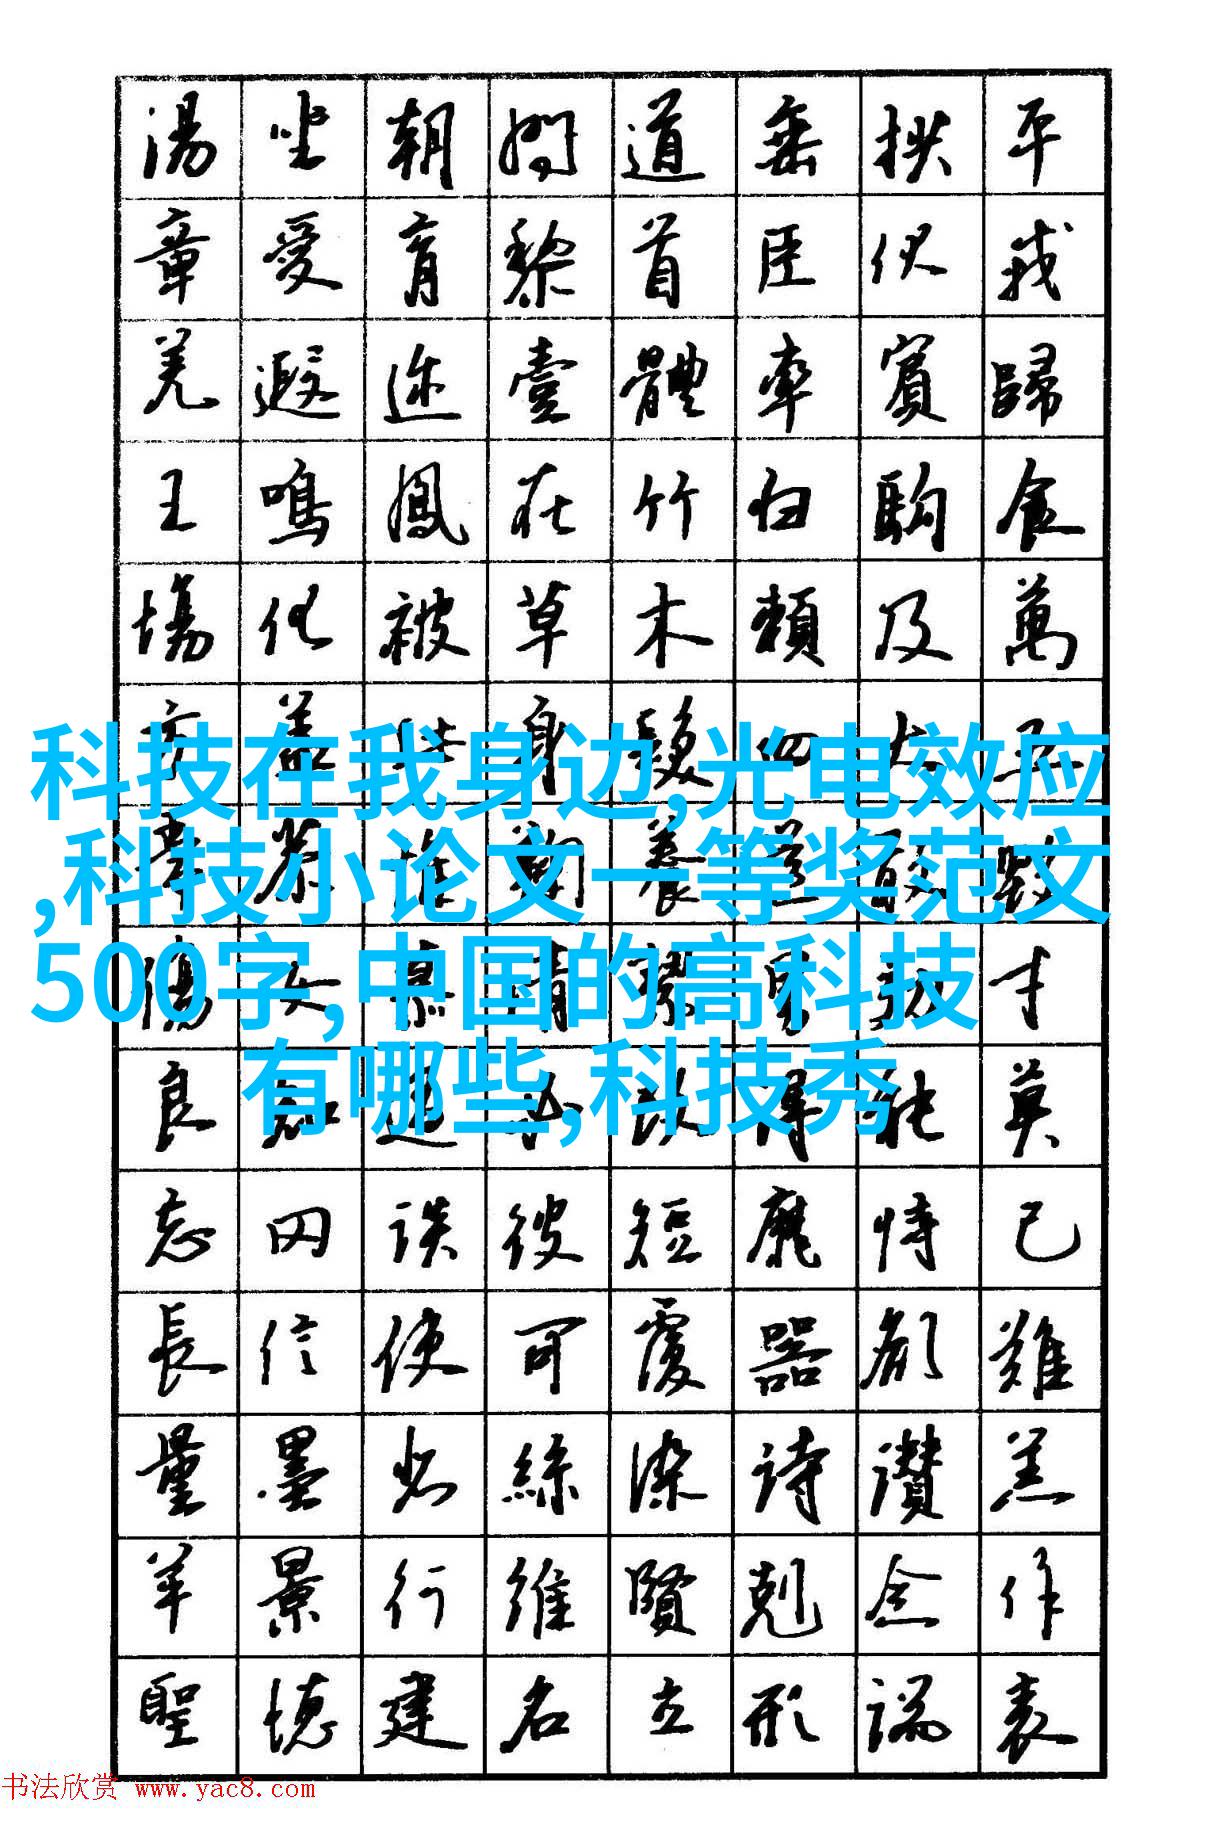 湯坐朝問道垂拱平
章愛育黎首臣伏戎
羌遐迩壹體率賓歸
王鳴鳳在竹白駒食
場化被草木賴及萬
科技在我身边,光电效应
,科技小论文一等奖范文
500字,中国的高科技
有哪些,科技秀
良知過必改得能莫
忘罔談彼短靡恃己
長信使可覆器欲難
量墨悲絲染詩讚羔
羊景行維賢剋念作
聖德建名立形端表
书法欣赏 www.yac8.com